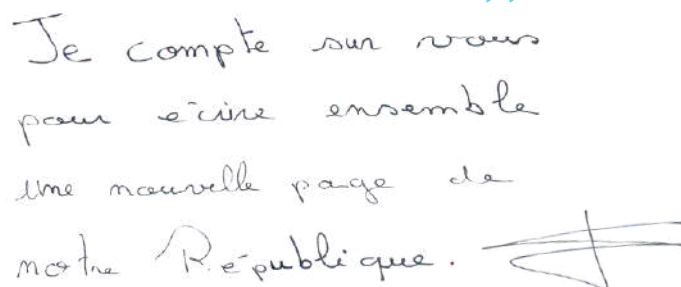 Je compte sur vous
pour écrire ensemble
une nouvelle page de
notre République.